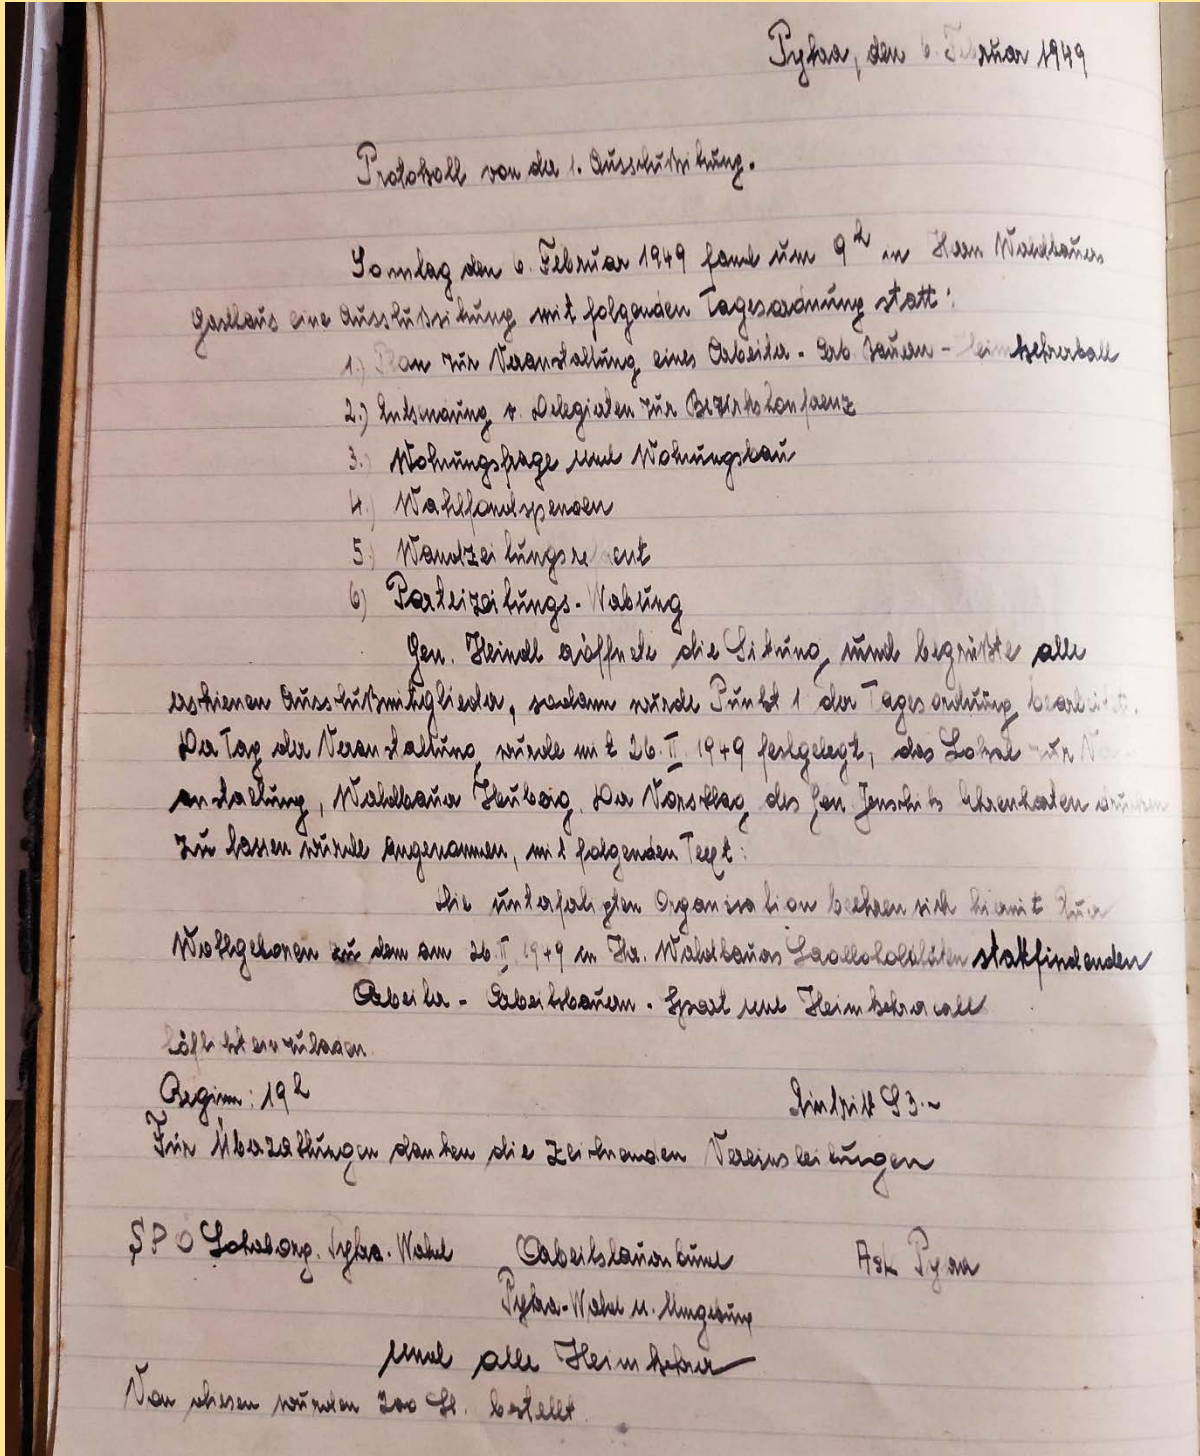 Pyhra, den 6. Februar 1949
Protokoll von der 1. Ausschußsitzung.
Sonntag den 6. Februar 1949 fand um 9 h in Herrn Waldbauers
Gasthaus eine Ausschußsitzung mit folgenden Tagesordnung statt:
1.) Plan zur Veranstaltung eines Arbeiter - Arb. Bauern - Heimkehrerball
2.) Entsendung v. Delegierten zur Bezirkskonferenz
3.) Wohnungsfrage und Wohnungsbau
4.) Wahlfondspenden
5.) Wandzeitungsreferent
6) Parteizeitungs-Werbung
Gen. Heindl eröffnete die Sitzung und begrüßte alle
erschienen Ausschußmitglieder, sodann wurde Punkt 1 der Tagesordnung bearbeitet.
Der Tag der Veranstaltung wurde mit 26. II. 1949 festgelegt, das Lokal zur Ver
anstaltung, Waldbauer Heuberg. Der Vorschlag des Gen. Ehrenkarten drucken
zu lassen wurde angenommen, mit folgenden Text:
Die unterfertigten Organisation beehren sich hiermit Euer
Wohlgeboren zu dem am 26. II. 1949 in Hr. Waldbauers Saallokalitäten stattfindenden
Arbeiter - Arbeitsbauern - Sport und Heimkehrerball
höflichst einzuladen.
Beginn: 19 h Eintritt S 3.-
Für Überzahlungen danken die zeichnenden Vereinsleitungen
SPÖ Lokalorg. Pyhra-Wald Arbeitsbauernbund Ask Pyhra
Pyhra-Wald u. Umgebung
und alle Heimkehrer
Von diesen wurden 200 St. bestellt.